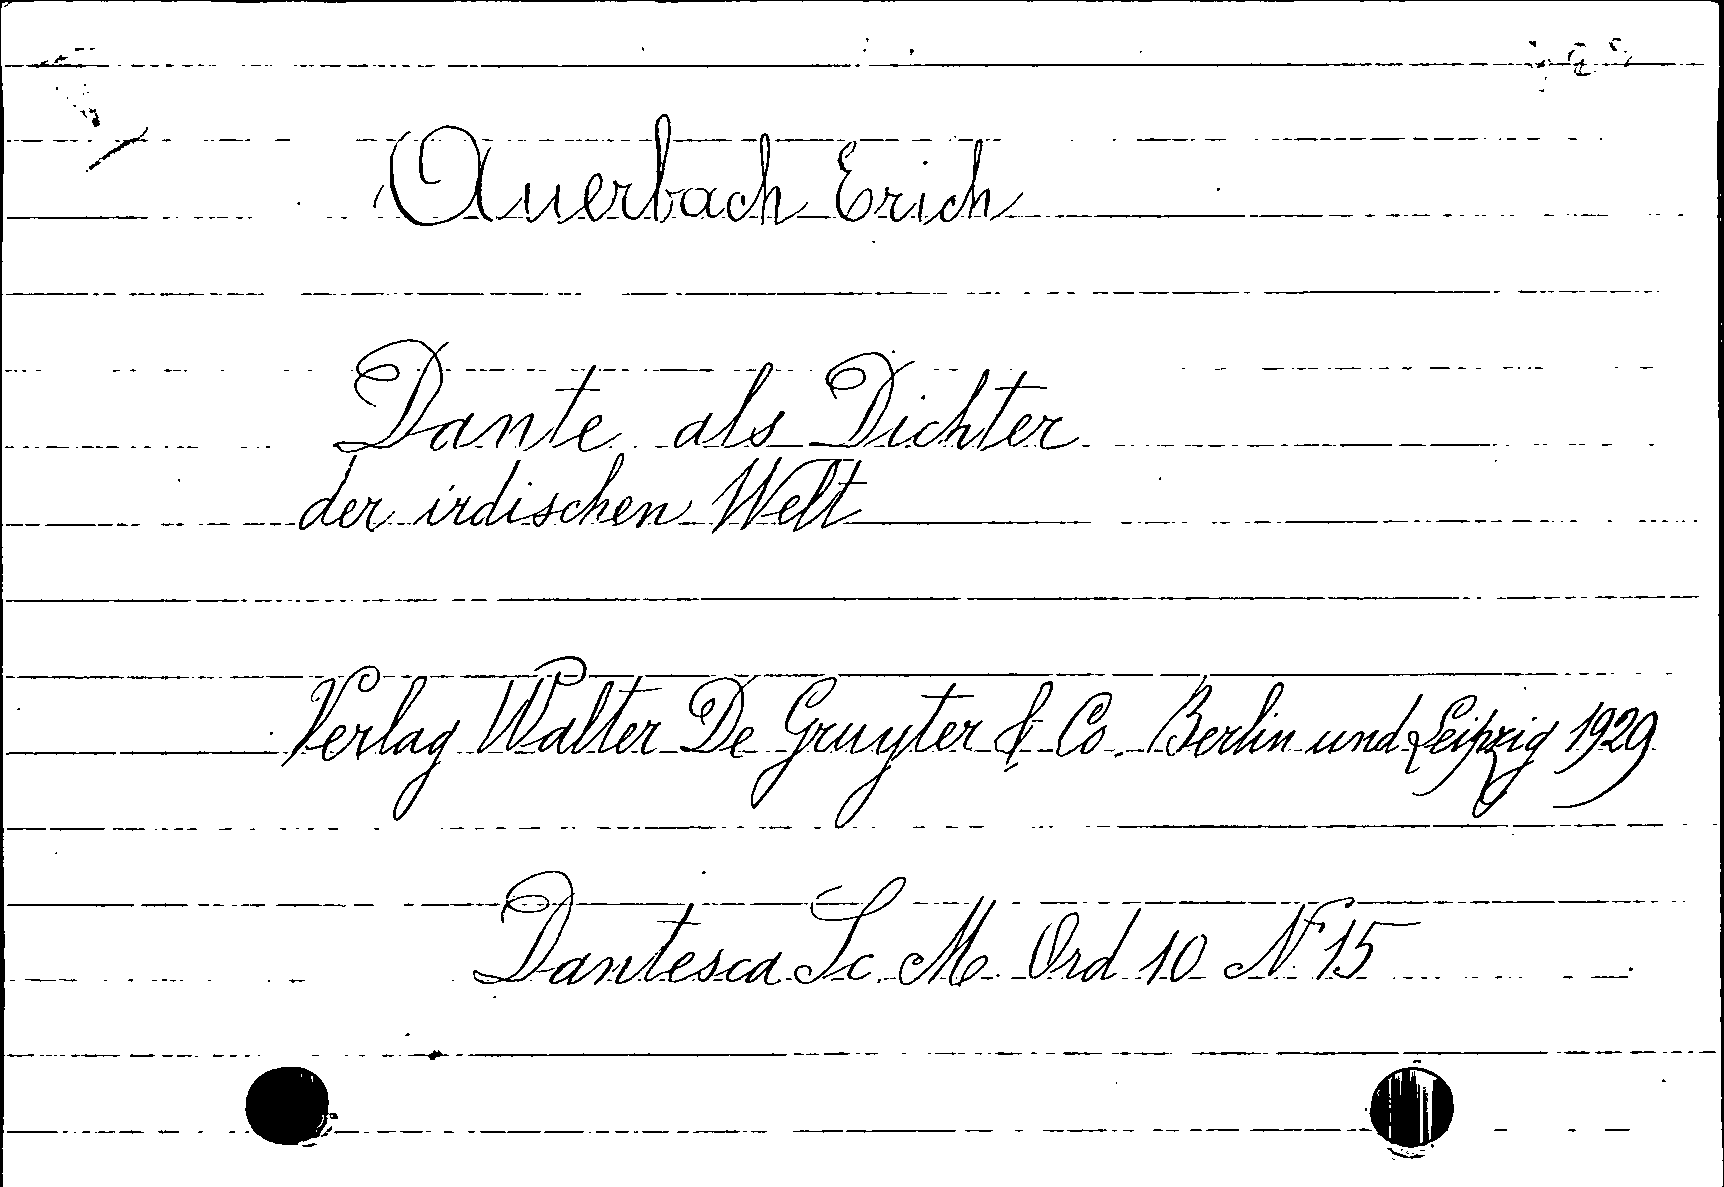 Auerbach Erich
Dante als Dichter
der irdischen Welt
Verlag Walter De Gruyter & Co. Berlin und Leipzig 1929
Dantesca Sc. M Ord 10 N 15